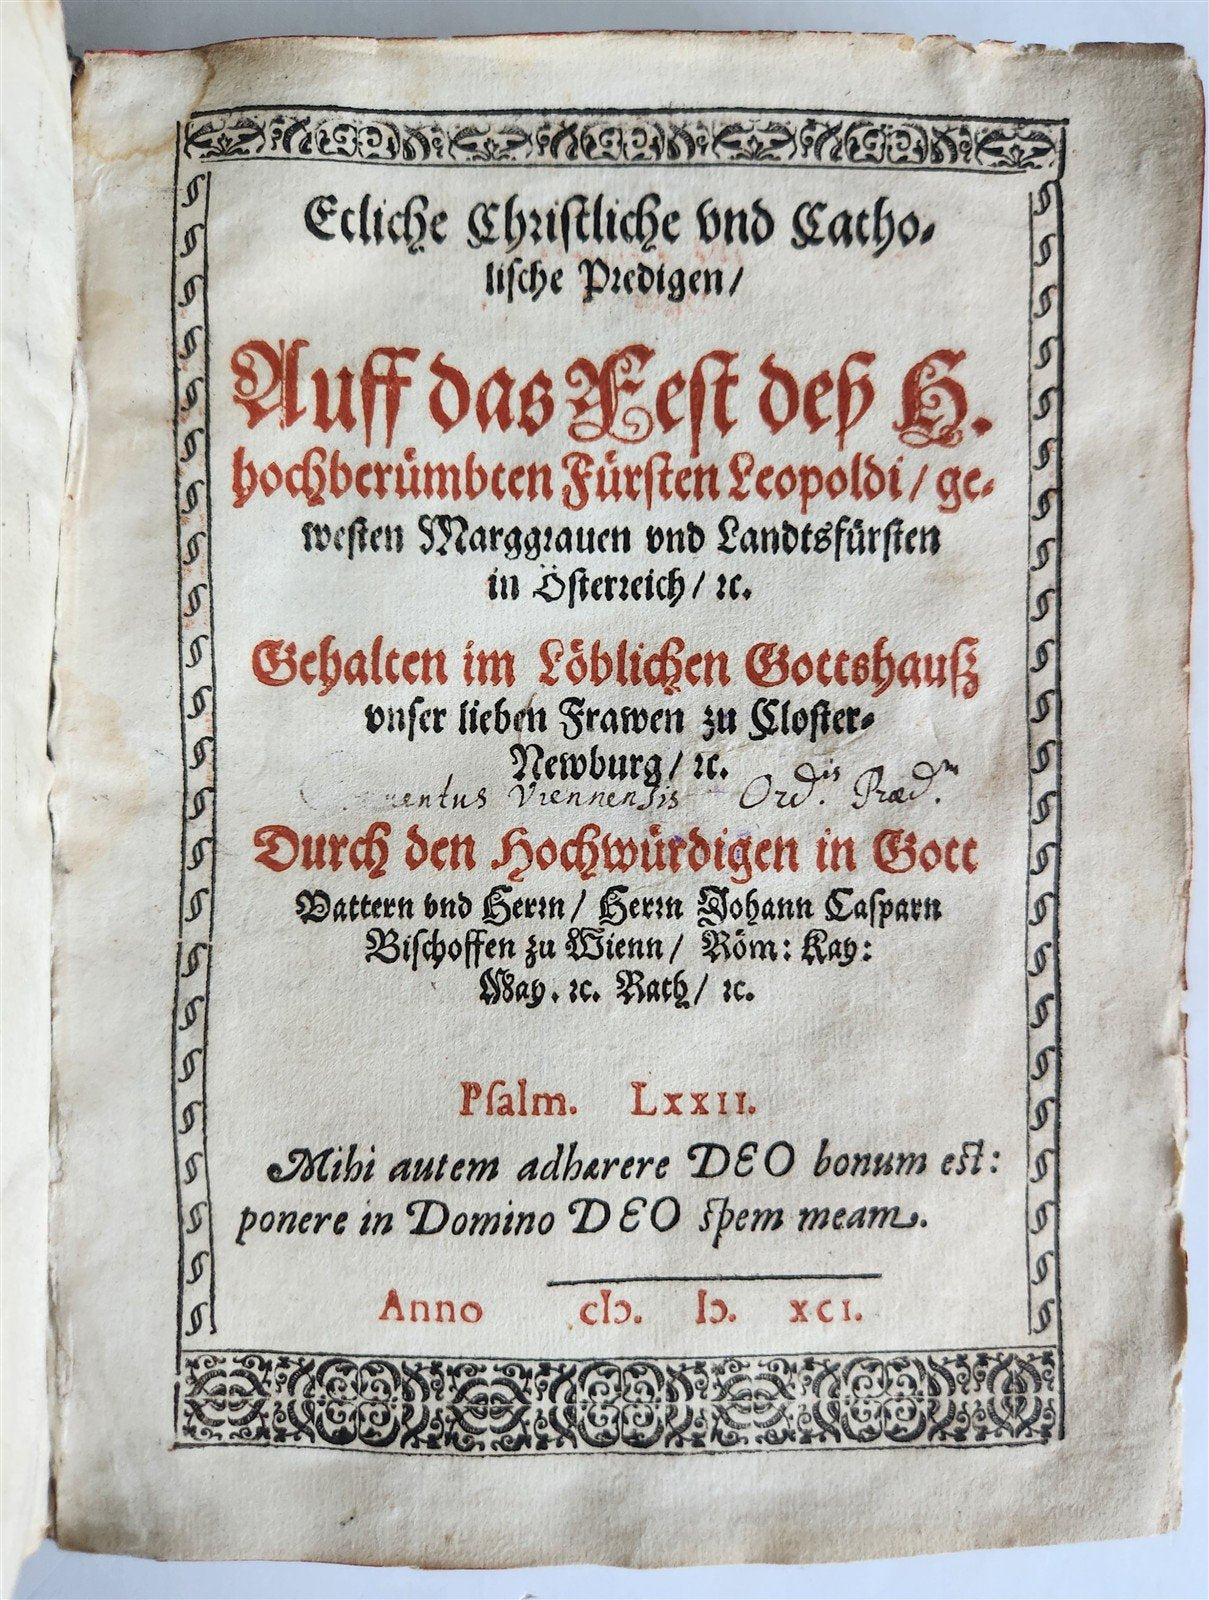 Etliche Christliche vnd Catho-
lische Predigen/
Auff das Fest deß H.
hochberümbten Fürsten Leopoldi/ ge-
westen Marggrauen vnd Landtsfürsten
in Österreich/ ꝛc.
Gehalten im Löblichen Gottshauß
vnser lieben Frawen zu Closter-
Newburg/ ꝛc.
Viennensis Ord.is Præd.m
Durch den Hochwürdigen in Gott
Vattern vnd Herrn/ Herrn Johann Casparn
Bischoffen zu Wienn/ Röm: Kay:
May. ꝛc. Rath/ ꝛc.
Psalm. LXXII.
Mihi autem adhærere DEO bonum est:
ponere in Domino DEO spem meam.
Anno cIↄ. Iↄ. XCI.